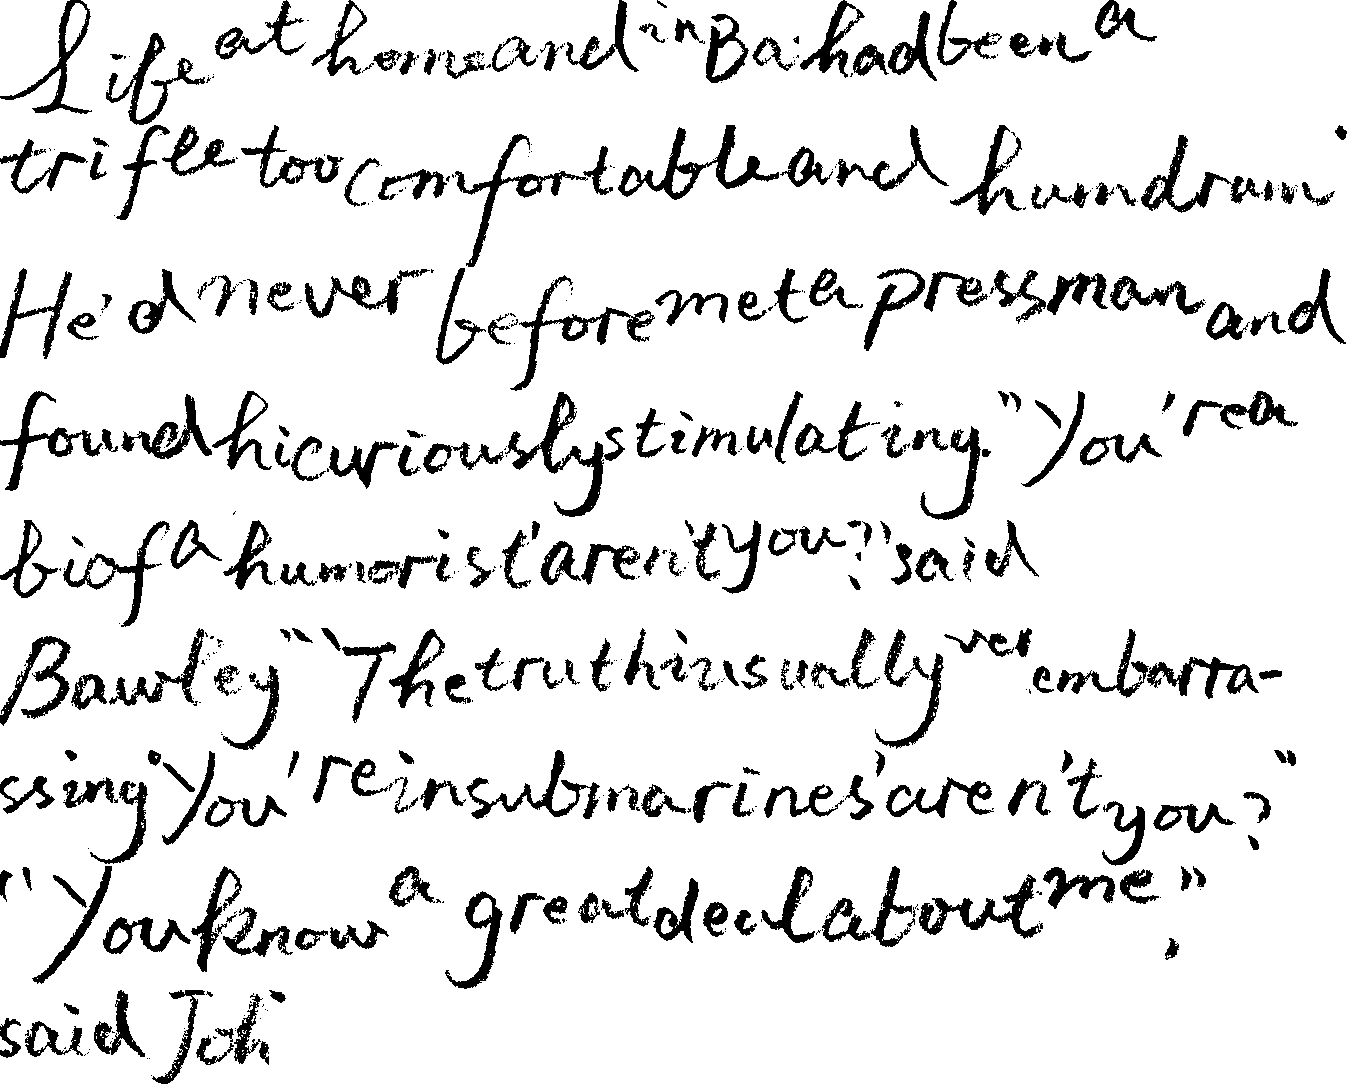 Life at home and in Ba. had been a
trifle too comfortable and humdrum.
He'd never before met a pressman and
found hi curiously stimulating. "You're a
bi of a humorist' aren't you?" said
Bawley "" The truth i usually ver embarra-
ssing. You're in submarines' aren't you?"
"You know a great deal about me",
said Joh.